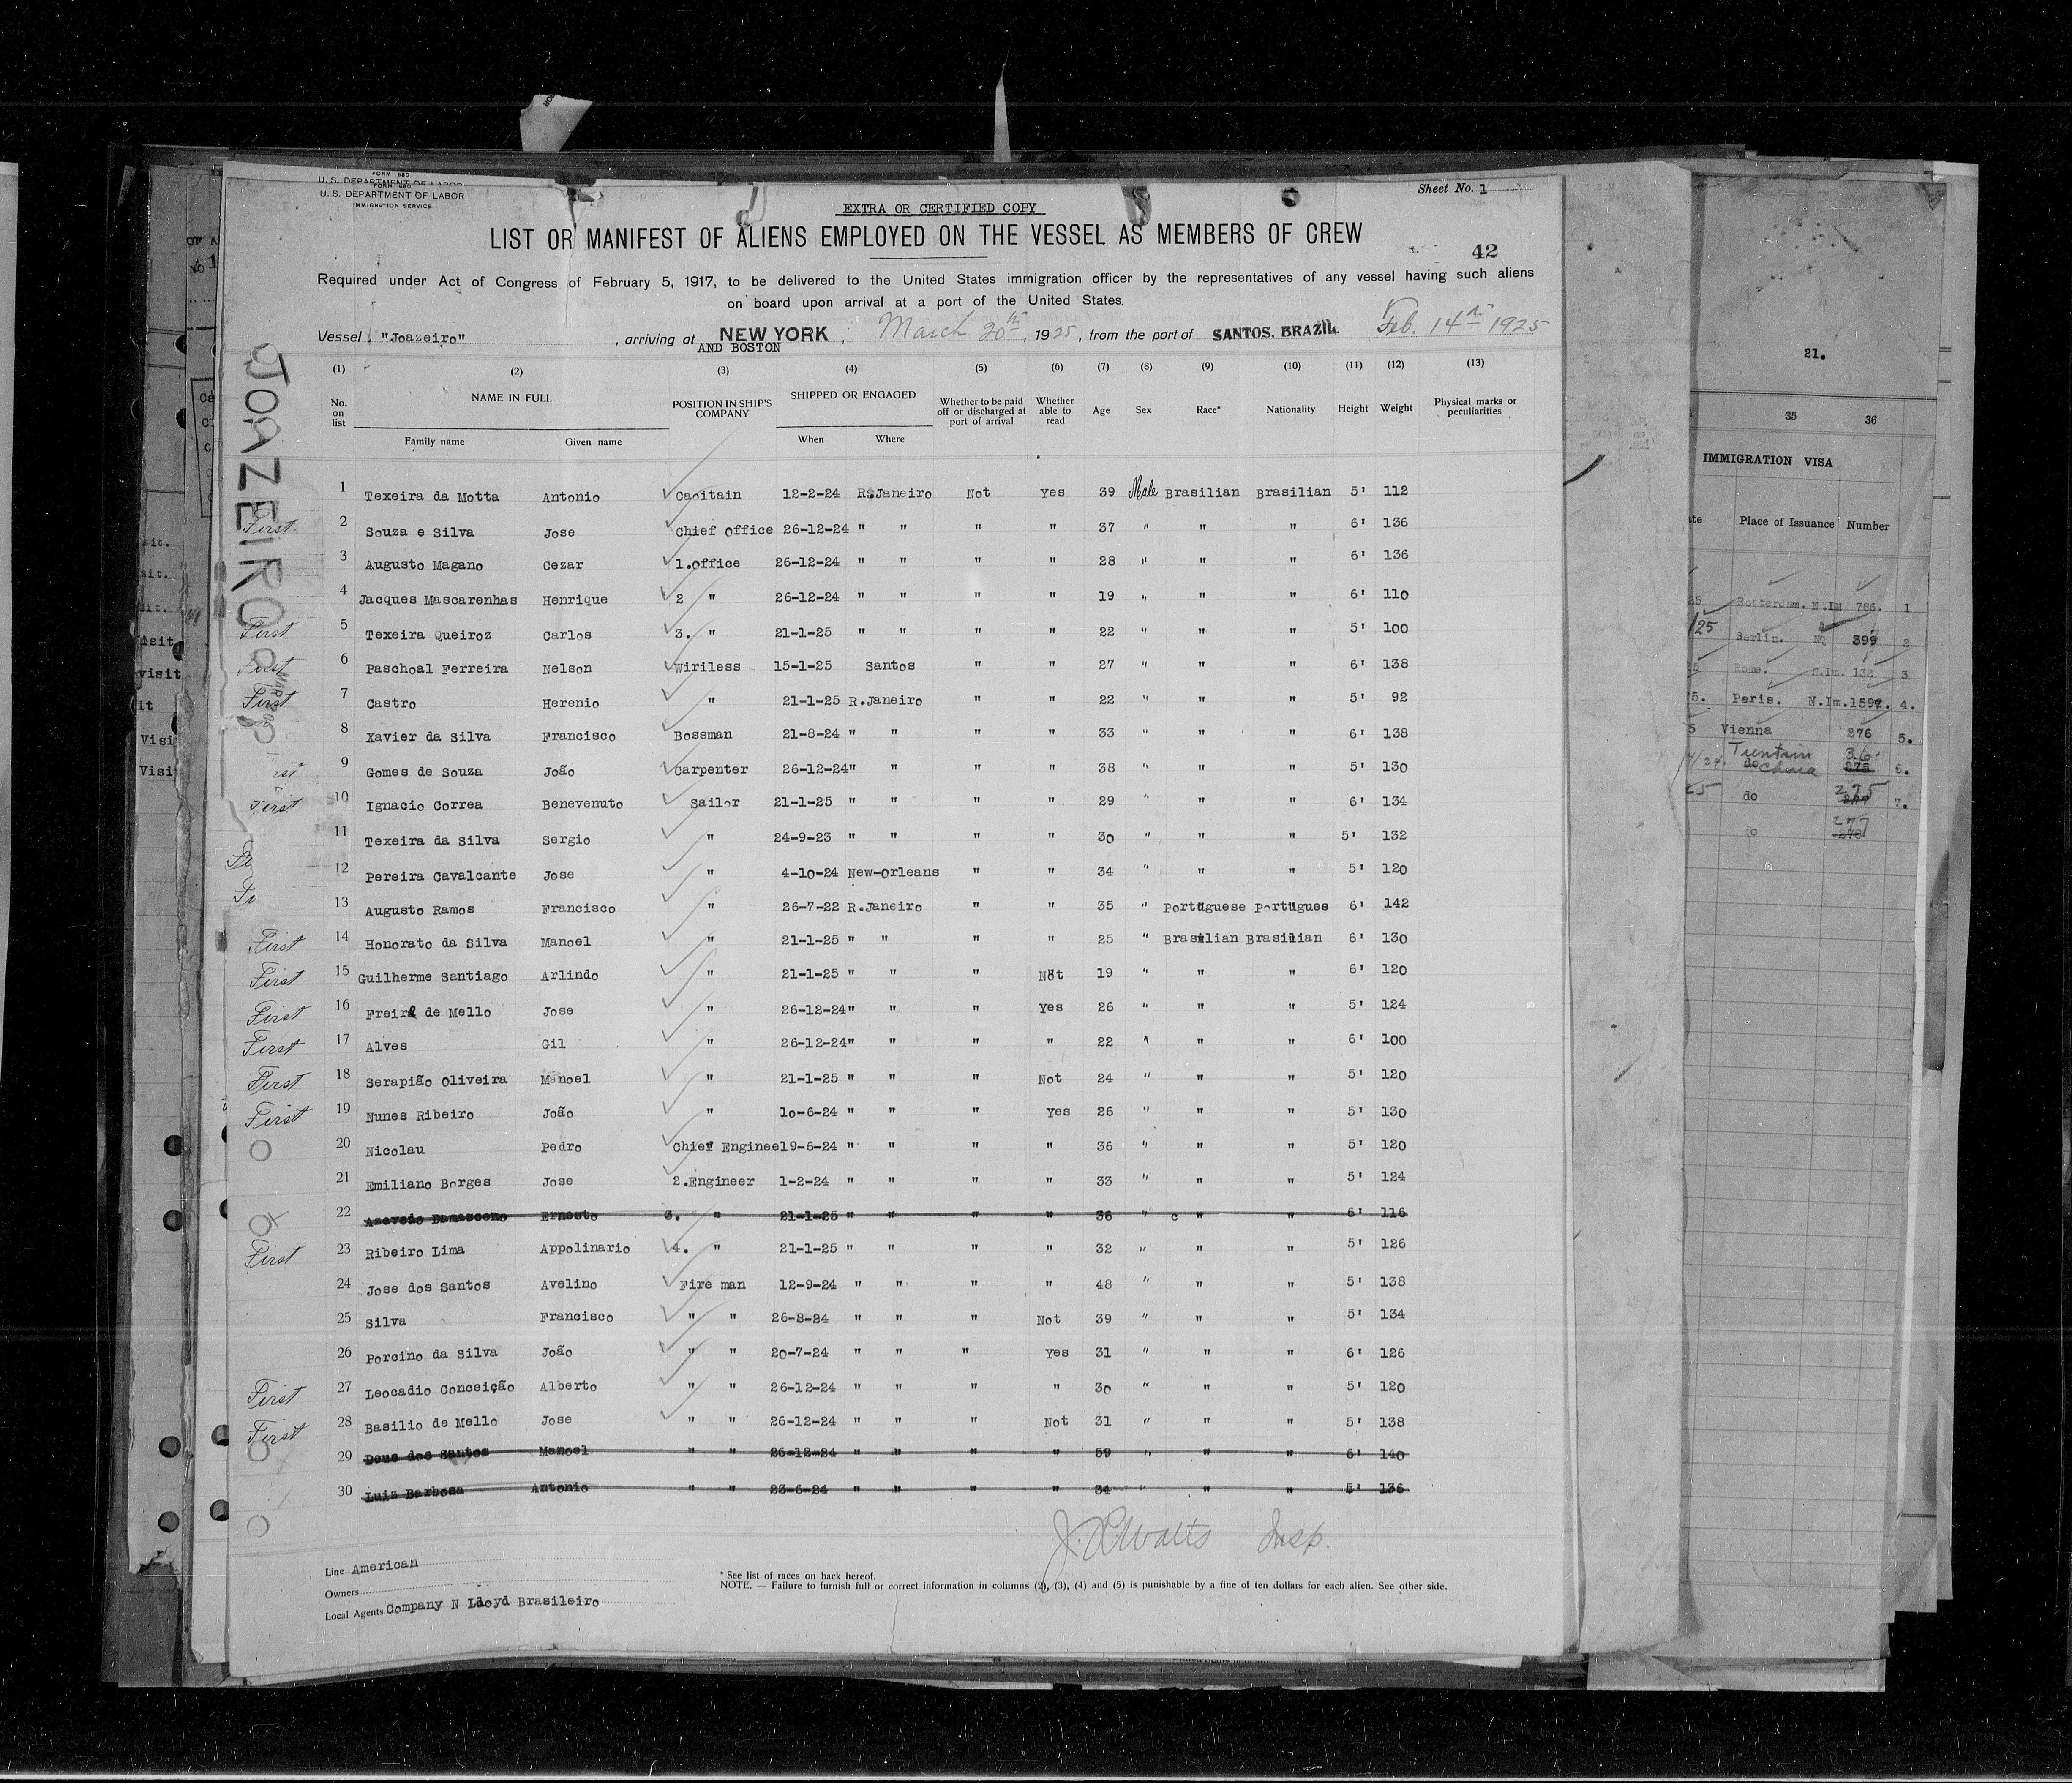 FORM 680
U. S. DEPARTMENT OF LABOR
IMMIGRATION SERVICE
Sheet No. 1
EXTRA OR CERTIFIED COPY
LIST OR MANIFEST OF ALIENS EMPLOYED ON THE VESSEL AS MEMBERS OF CREW
42
Required under Act of Congress of February 5, 1917, to be delivered to the United States immigration officer by the representatives of any vessel having such aliens
on board upon arrival at a port of the United States.
Vessel "Joazeiro", arriving at NEW YORK, March 20th, 1925, from the port of SANTOS, BRAZIL. Feb. 14th 1925
AND BOSTON
JOAZEIRO
(1) (2) (3) (4) (5) (6) (7) (8) (9) (10) (11) (12) (13)
No. on list NAME IN FULL Family name Given name POSITION IN SHIP'S COMPANY SHIPPED OR ENGAGED When Where Whether to be paid off or discharged at port of arrival Whether able to read Age Sex Race* Nationality Height Weight Physical marks or peculiarities
1 Texeira da Motta Antonio Capitain 12-2-24 R.Janeiro Not Yes 39 Male Brasilian Brasilian 5' 112
First 2 Souza e Silva Jose Chief Office 26-12-24 " " " " 37 " " " 6' 136
3 Augusto Magano Cezar 1.office 26-12-24 " " " " 28 " " " 6' 136
4 Jacques Mascarenhas Henrique 2 " 26-12-24 " " " " 19 " " " 6' 110
First 5 Texeira Queiroz Carlos 3. " 21-1-25 " " " " 22 " " " 5' 100
First 6 Paschoal Ferreira Nelson Wiriless 15-1-25 Santos " " 27 " " " 6' 138
First 7 Castro Herenio " 21-1-25 R.Janeiro " " 22 " " " 5' 92
8 Xavier da Silva Francisco Bossman 21-8-24 " " " " 33 " " " 6' 138
9 Gomes de Souza João Carpenter 26-12-24 " " " " 38 " " " 5' 130
First 10 Ignacio Correa Benevenuto Sailor 21-1-25 " " " " 29 " " " 6' 134
11 Texeira da Silva Sergio " 24-9-23 " " " " 30 " " " 5' 132
12 Pereira Cavalcante Jose " 4-10-24 New-Orleans " " 34 " " " 5' 120
13 Augusto Ramos Francisco " 26-7-22 R.Janeiro " " 35 " Portuguese Portugues 6' 142
First 14 Honorato da Silva Manoel " 21-1-25 " " " " 25 " Brasilian Brasilian 6' 130
First 15 Guilherme Santiago Arlindo " 21-1-25 " " " Not 19 " " " 6' 120
First 16 Freire de Mello Jose " 26-12-24 " " " Yes 26 " " " 5' 124
First 17 Alves Gil " 26-12-24 " " " " 22 " " " 6' 100
First 18 Serapião Oliveira Manoel " 21-1-25 " " " Not 24 " " " 5' 120
First 19 Nunes Ribeiro João " 10-6-24 " " " Yes 26 " " " 5' 130
20 Nicolau Pedro Chief Enginee 19-6-24 " " " " 36 " " " 5' 120
21 Emiliano Borges Jose 2.Engineer 1-2-24 " " " " 33 " " " 5' 124
22 Azevedo Damasceno Ernesto 3. " 21-1-25 " " " " 36 " c " " 6' 116
First 23 Ribeiro Lima Appolinario 4. " 21-1-25 " " " " 32 " " " 5' 126
24 Jose dos Santos Avelino Fire man 12-9-24 " " " " 48 " " " 5' 138
25 Silva Francisco " " 26-8-24 " " " Not 39 " " " 5' 134
26 Porcino da Silva João " " 20-7-24 " " " Yes 31 " " " 6' 126
First 27 Leocadio Conceição Alberto " " 26-12-24 " " " " 30 " " " 5' 120
First 28 Basilio de Mello Jose " " 26-12-24 " " " Not 31 " " " 5' 138
29 Deus dos Santos Manoel " " 26-12-24 " " " " 59 " " " 6' 140
30 Luiz Barbosa Antonio " " 23-6-24 " " " " 34 " " " 5' 136
J. Watts Insp.
Line American
Owners
Local Agents Company N Lloyd Brasileiro
* See list of races on back hereof.
NOTE. — Failure to furnish full or correct information in columns (2), (3), (4) and (5) is punishable by a fine of ten dollars for each alien. See other side.
21.
35 36
IMMIGRATION VISA
Place of Issuance Number
Rotterdam. N.IM 786. 1
Berlin. No 399 2
Rome. N.Im. 132 3
Paris. N.Im.1597. 4.
Vienna 276 5.
do 36 275 6.
do 275 7.
do 277